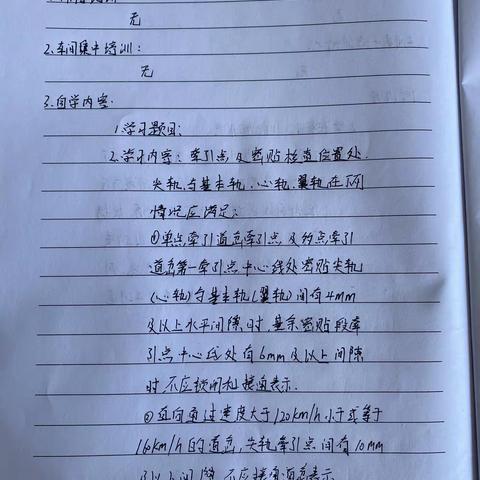 无
2.车间集中培训：
无
3.自学内容.
1.学习题目：
2.学习内容：牵引点及密贴检查位置处.
尖轨与基本轨、心轨、翼轨在下列
情况应满足：
①单点牵引道岔牵引点及多点牵引
道岔第一牵引点中心线处密贴尖轨
(心轨)与基本轨(翼轨)间有4mm
及以上水平间隙时,其余密贴段牵
引点中心线处有6mm及以上间隙
时不应锁闭和接通表示.
②直向通过速度大于120km/h小于或等于
160km/h的道岔,尖轨牵引点间有10mm
及以上间隙,不应接通道岔表示